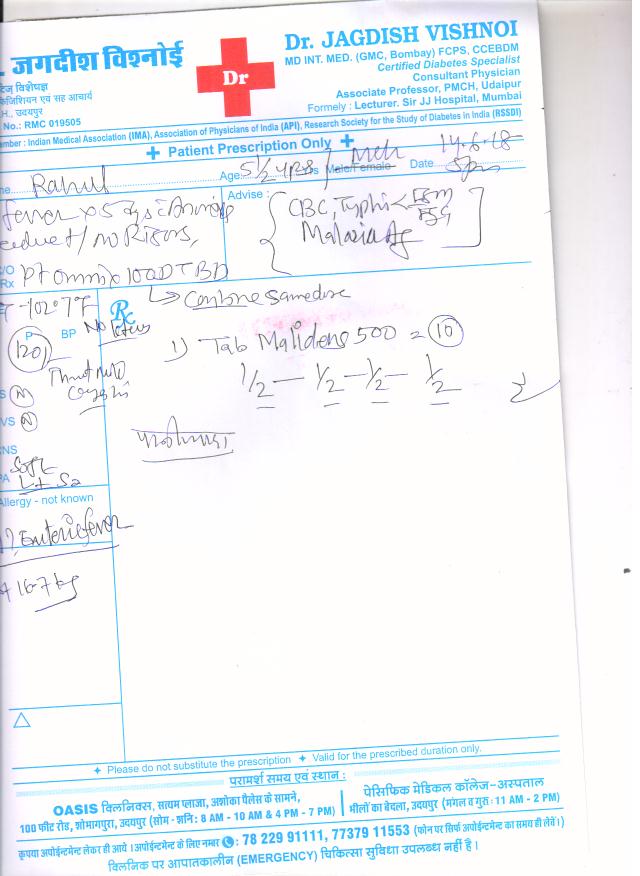 . जगदीश विश्नोई
Dr
Dr. JAGDISH VISHNOI
MD INT. MED. (GMC, Bombay) FCPS, CCEBDM
Certified Diabetes Specialist
Consultant Physician
Associate Professor, PMCH, Udaipur
Formerly : Lecturer. Sir JJ Hospital, Mumbai
विशेषज्ञ
फिजिशियन एवं सह आचार्य
उदयपुर
No.: RMC 019505
ember : Indian Medical Association (IMA), Association of Physicians of India (API), Research Society for the Study of Diabetes in India (RSSDI)
Patient Prescription Only
Rahul
Age: 5 1/2 yrs
Male/Female
Date 14.6.18
5pm
fever x 5
Advise :
CBC, Typhi
Malaria Ag
no Rigors,
C/O
Rx
100D T BD
102.7F
Combine same dose
P
120/
BP
No
1) Tab Malidens 500 = 10
1/2 — 1/2 — 1/2 — 1/2
S N
VS N
NS
Soft
PA
Allergy - not known
Enteric fever
16.7 kg
△
Please do not substitute the prescription
Valid for the prescribed duration only.
परामर्श समय एवं स्थान :
OASIS क्लिनिक्स, सत्यम प्लाजा, अशोका पैलेस के सामने,
100 फीट रोड, शोभागपुरा, उदयपुर (सोम - शनि: 8 AM - 10 AM & 4 PM - 7 PM)
पेसिफिक मेडिकल कॉलेज-अस्पताल
भीलों का बेदला, उदयपुर (मंगल व गुरु : 11 AM - 2 PM)
कृपया अपोईन्टमेन्ट लेकर ही आवे । अपोईन्टमेन्ट के लिए नम्बर : 78 229 91111, 77379 11553 (फोन पर सिर्फ अपोईन्टमेन्ट का समय ही लेवें।)
क्लिनिक पर आपातकालीन (EMERGENCY) चिकित्सा सुविधा उपलब्ध नहीं है ।